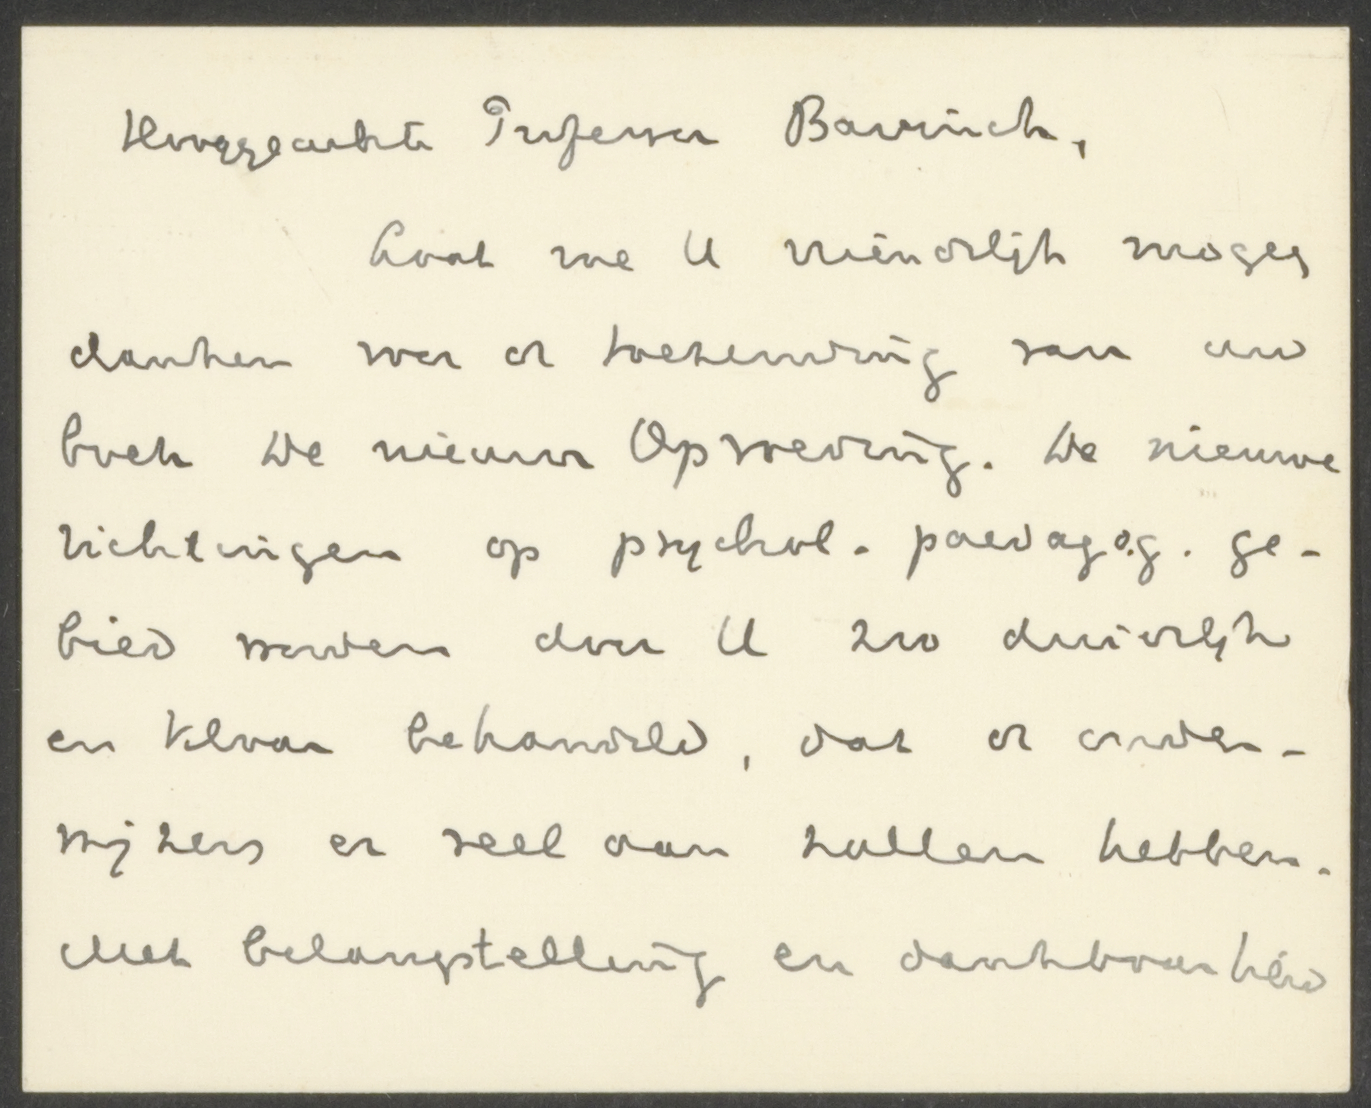 Hooggeachte Professor Bavinck,
Laat me U vriendelijk mogen
danken voor de toezending van uw
boek De nieuwe Opvoeding. De nieuwe
richtingen op psychol. paedagog. ge-
bied worden door U zoo duidelijk
en klaar behandeld, dat de onder-
wijzers er veel aan zullen hebben.
Met belangstelling en dankbaarheid